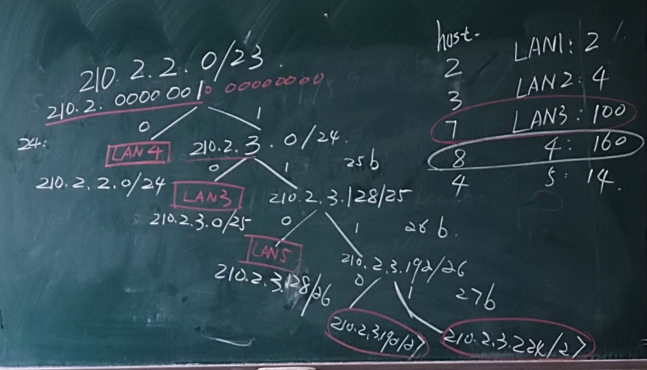 210.2.2.0/23.
210.2.0000001 0 00000000
0 1
24:
LAN4
210.2.3.0/24.
210.2.2.0/24
0 1 25b
LAN3
210.2.3.128/25
210.2.3.0/25
0 1 26b.
LAN5
210.2.3.192/26
210.2.3.128/26
0 1 27b
210.2.3.192/27
210.2.3.224/27
host.
2 LAN1: 2
3 LAN2: 4
7 LAN3: 100
8 4: 160
4 5: 14.